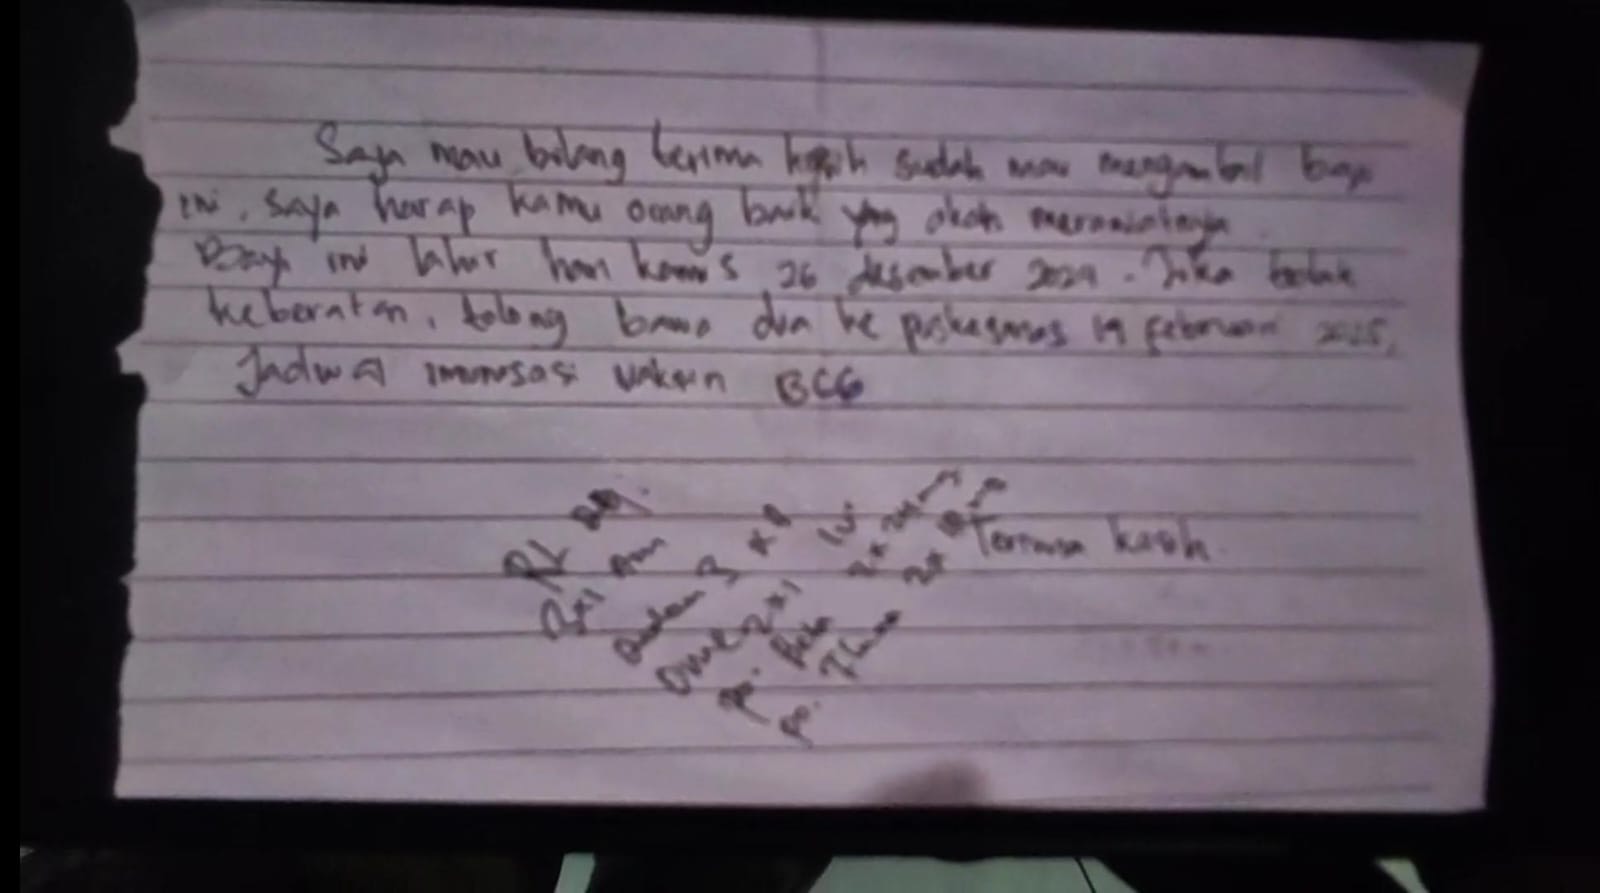 Saya mau bilang terima kasih sudah mau mengambil bayi
ini, saya harap kamu orang baik yang akan merawatnya
Bayi ini lahir hari kamis 26 desember 2024. Jika tidak
keberatan, tolong bawa dia ke puskesmas 19 februari 2025,
Jadwal imunisasi vaksin BCG
RL
3 x 1
2 x 1
Terima kasih.